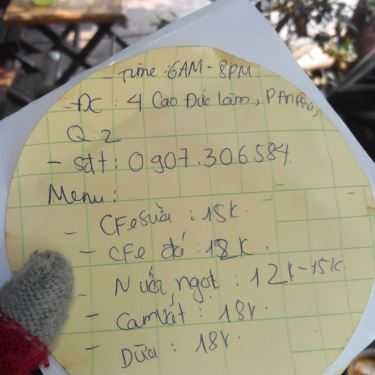 - Time : 6AM - 8PM
- ĐC : 4 Cao Đức Lân, P An Phú,
Q 2
- sđt : 0907.306584
Menu :
- CFe sữa : 15k.
- CFe đá : 12k.
- Nước ngọt : 12k-15k
- Cam vắt : 18k.
- Dừa : 18k.